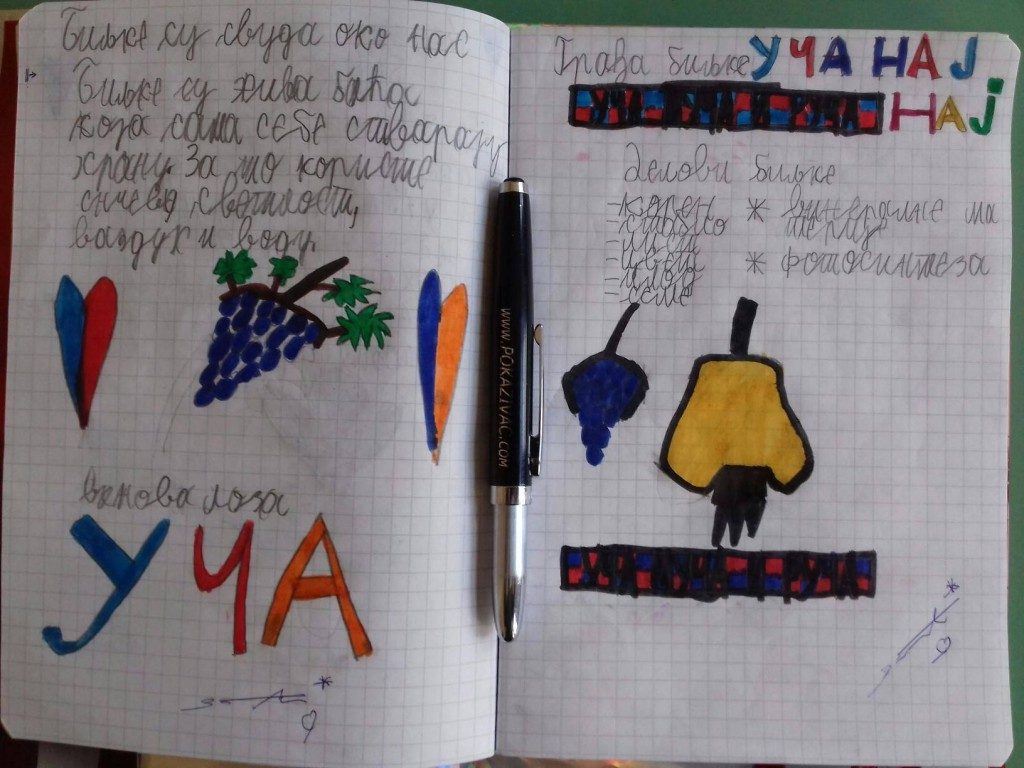 Биљке су свуда око нас
Биљке су жива бића
која сама СЕБЕ стварају
храну. За то користе
сунчеву светлост,
ваздух и воду.
Винова лоза
УЧА
www.POKAZIVAC.com
Грава биљке УЧА НАЈ
НАЈ
Делови биљке
-корен * минералне ма
-стабло терије
-лист
-цвет * фотосинтеза
-плод
-семе